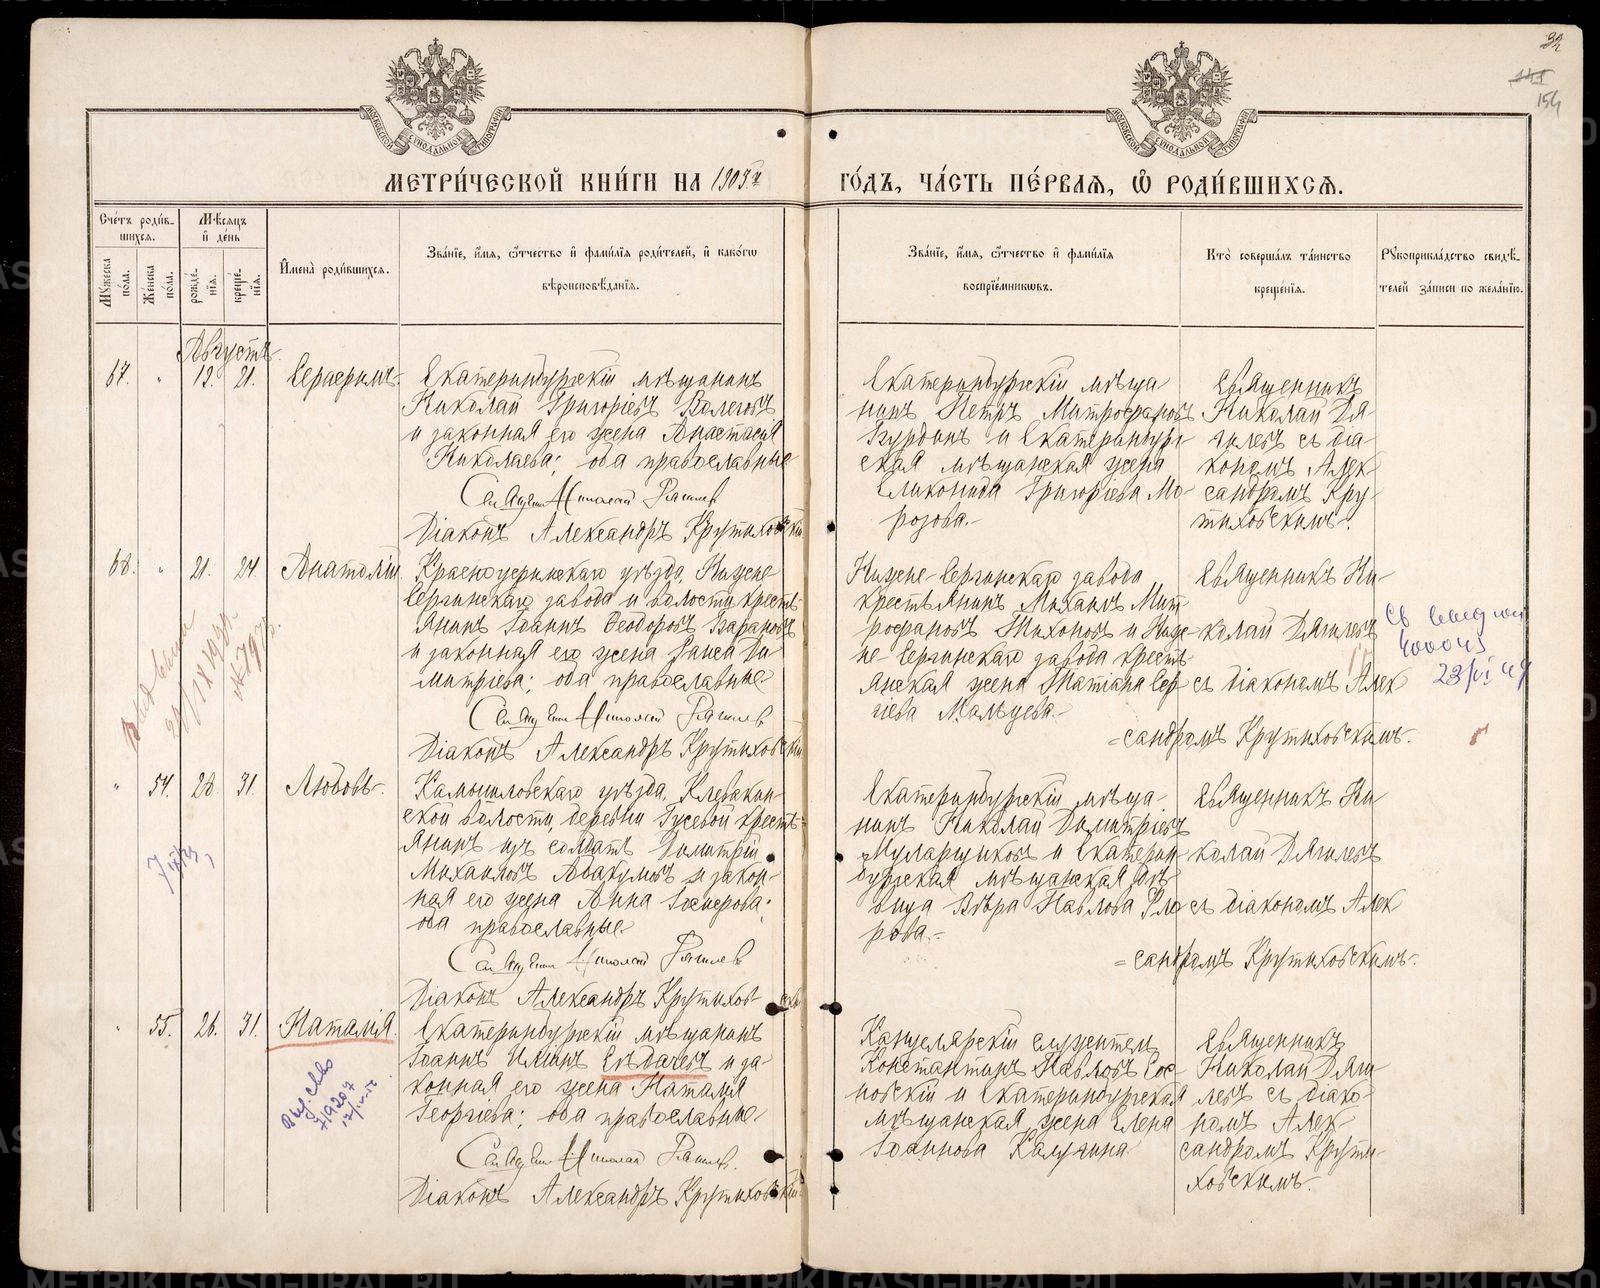 МЕТРИ́ЧЕСКОЙ КНИ́ГИ НА 1903й
ГО́ДЪ, ЧА́СТЬ ПЕ́РВАЯ, Ѡ РОДИ́ВШИХСЯ.
154
Сче́тъ роди́в-
шихся.
Му́жеска по́ла.
Же́нска по́ла.
Мѣ́сяцъ
и де́нь
рожде́-
нія.
креще́-
нія.
Имена̀ роди́вшихся.
Зва́ніе, и́мя, ѻ́тчество и фами́лія роди́телей, и како́гѡ
вѣроисповѣ́данія.
Зва́ніе, и́мя, ѻ́тчество и фами́лія
воспріе́мниковъ.
Кто̀ соверша́лъ та́инство
креще́нія.
Рукоприкла́дство свидѣ́-
телей за́писи по жела́нію.
Августъ.
67. " 12. 21. Серафимъ.
Екатеринбургскій мѣщанинъ
Николай Григоріевъ Волеговъ
и законная его жена Анастасія
Николаева; оба православные
Священ. Николай Дягилев
Діаконъ Александръ Крутиховскій
Екатеринбургскій мѣща-
нинъ Петръ Митрофановъ
Бурдинъ и Екатеринбург-
ская мѣщанская жена
Еликонида Григоріева Мо-
розова.
Священникъ
Николай Дя-
гилевъ съ діа-
кономъ Алек-
сандромъ Кру-
тиховскимъ.
68. " 21. 24. Анатолій.
Красноуфимскаго уѣзда, Нижне-
Сергинскаго завода и волости кресть-
янинъ Іоаннъ Ѳеодоровъ Барановъ
и законная его жена Раиса Ди-
митріева; оба православные
Священ Николай Дягилев
Діаконъ Александръ Крутиховскій
Нижне-Сергинскаго завода
крестьянинъ Михаилъ Мит-
рофановъ Тихоновъ и Ниж-
не-Сергинскаго завода кресть-
янская жена Татіана Сер-
гіева Мальцева.
Священникъ Ни-
колай Дягилевъ
съ діакономъ Алек
=сандромъ Крутиховскимъ.
400045
23/VI 49
" 54. 28. 31. Любовь.
Камышловскаго уѣзда, Клевакин-
ской волости, деревни Гусевой кресть-
янинъ изъ солдатъ Димитрій
Михаиловъ Абакумовъ и закон-
ная его жена Анна
оба православные
Священ Николай Дягилев
Діаконъ Александръ Крутихов-
скій
Екатеринбургскій мѣща-
нинъ Николай Димитріевъ
Муларщиковъ и Екатерин-
бургская мѣщанская дѣ-
вица Вѣра Павлова Фло-
рова.
Священникъ Ни
колай Дягилевъ
съ діакономъ Алек
=сандромъ Крутиховскимъ.
" 55. 26. 31. Наталія.
Екатеринбургскій мѣщанинъ
Іоаннъ Илiинъ и за-
конная его жена Наталія
Георгіева; оба православные.
Священ Николай Дягилев.
Діаконъ Александръ Крутиховскій
Канцелярскій служитель
Константинъ Павловъ Сос-
новскій и Екатеринбургская
мѣщанская жена Елена
Іоаннова Калугина
Священникъ
Николай Дяги-
левъ съ діако-
номъ Алек-
сандромъ Крути-
ховскимъ.
METRIKI.GASO-URAL.RU